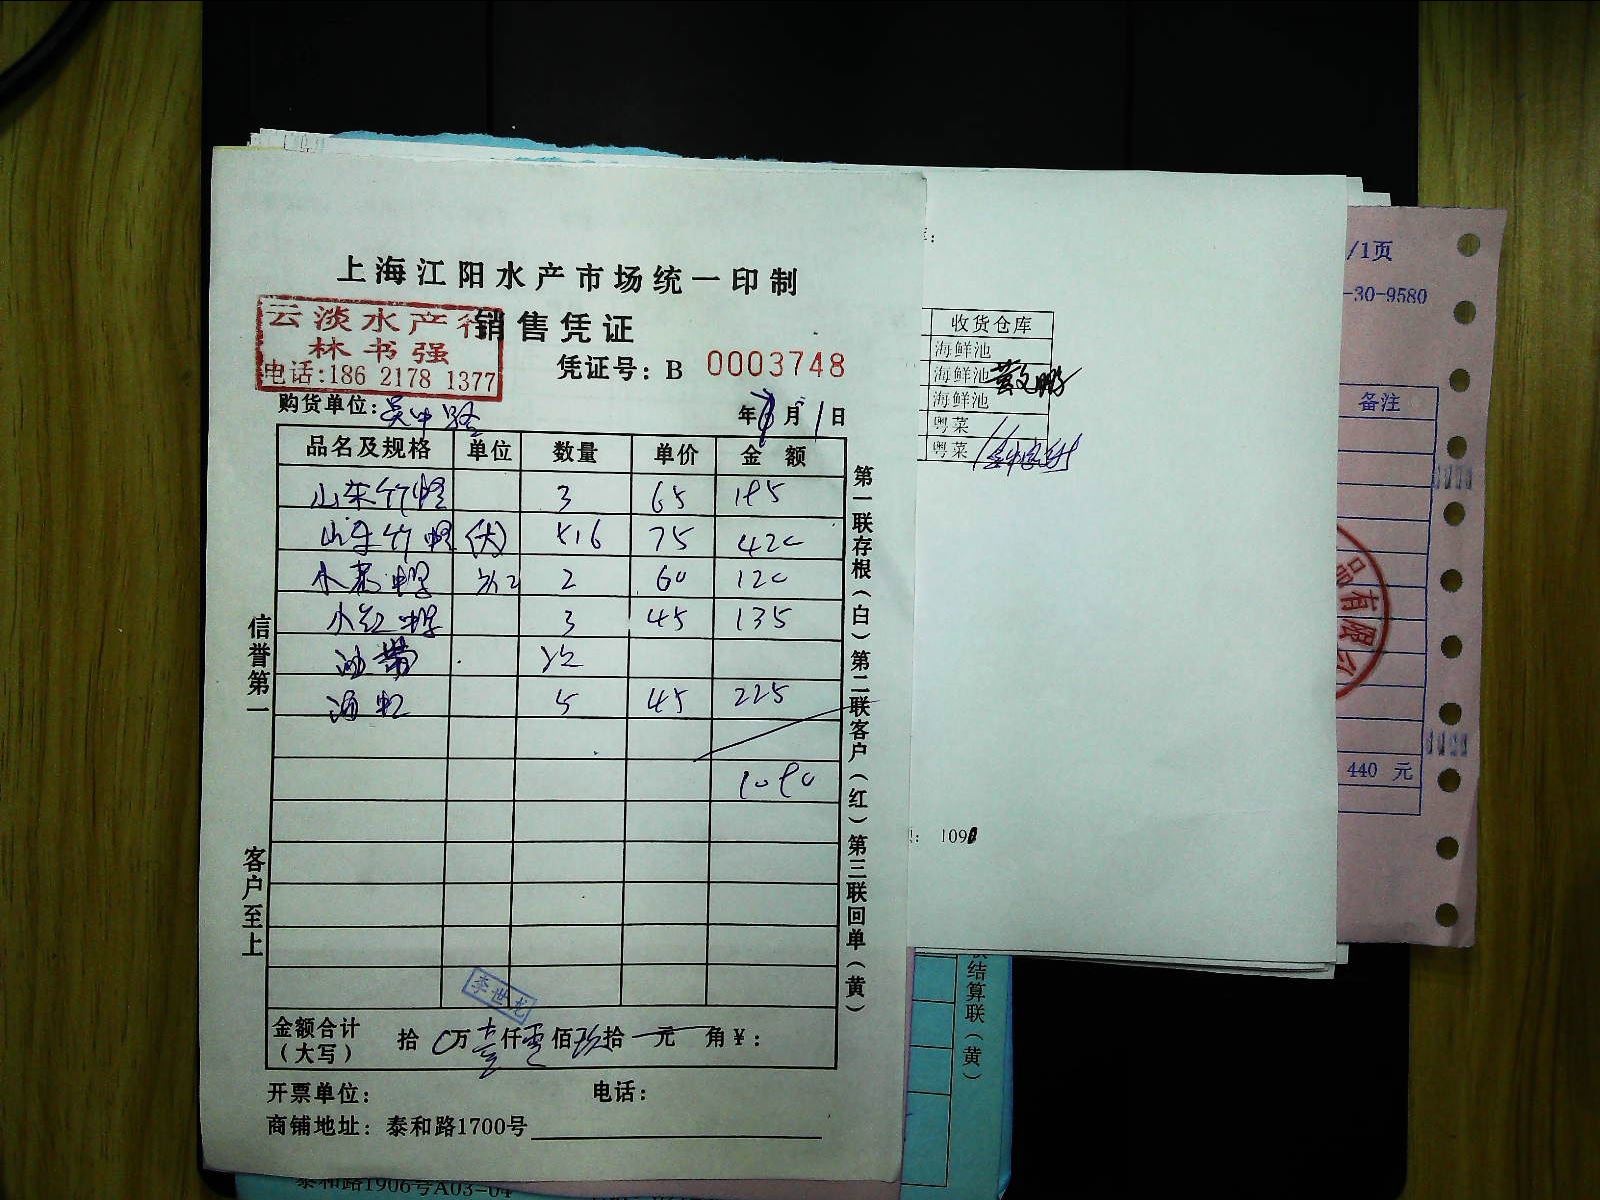 上海江阳水产市场统一印制
销售凭证
云淡水产行
林书强
电话:186 2178 1377
凭证号: B 0003748
购货单位:
年 月 1 日
品名及规格 单位 数量 单价 金额
山东竹蛏 3 65 195
山东竹蛏 (大) 75 420
2 60 120
小红 3 45 135
油带
5 45 225
1090
金额合计
(大写)
拾 0万 壹仟 零佰 玖拾 元 角 ¥:
李世龙
开票单位: 电话:
商铺地址: 泰和路1700号
信誉第一
客户至上
第一联存根(白)第二联客户(红)第三联回单(黄)
收货仓库
海鲜池
海鲜池
海鲜池
粤菜
粤菜
109
/1页
-30-9580
备注
品有限公
440 元
结算联(黄)
泰和路1906号A03-04